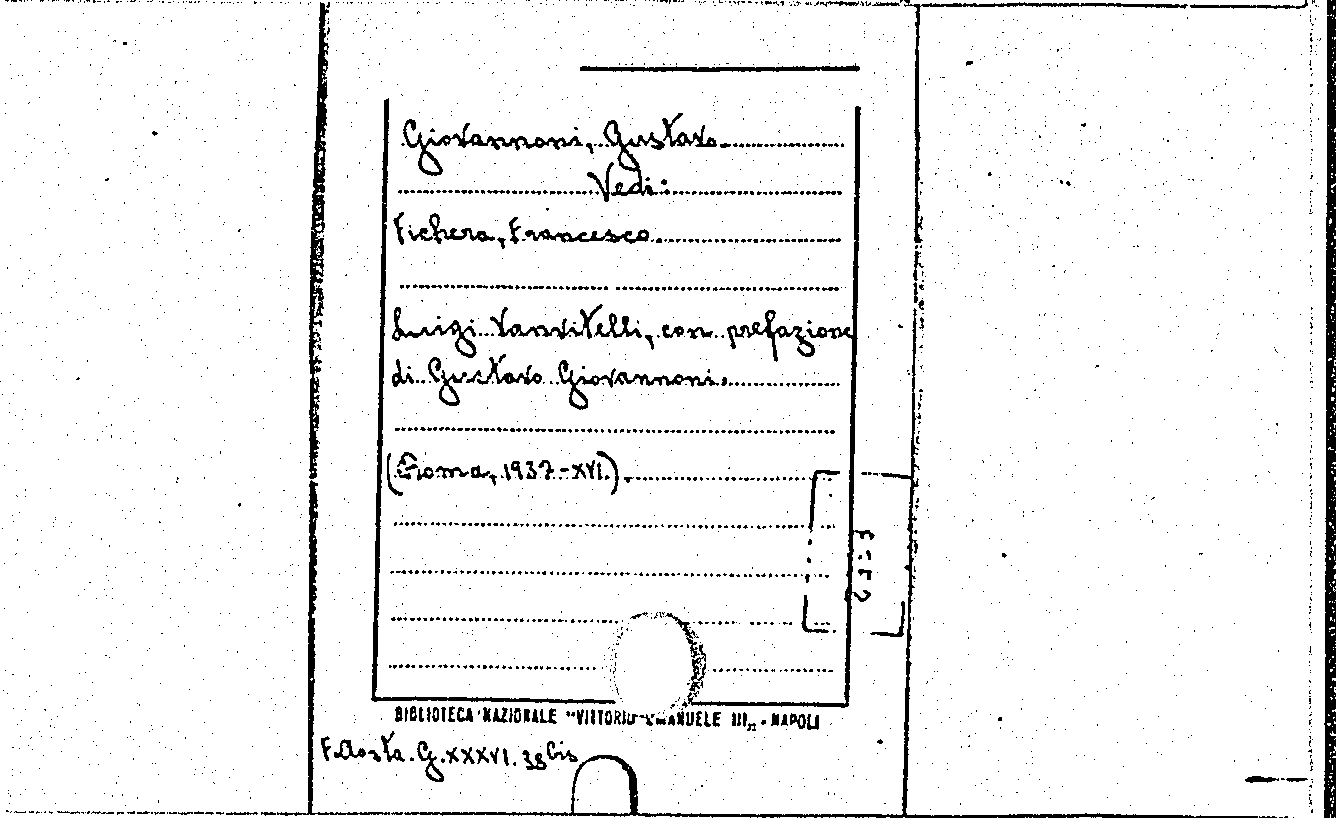 Giovannoni, Gustavo.
Vedi:
Fichera, Francesco.
Luigi Vanvitelli, con prefazione
di Gustavo Giovannoni.
(Roma, 1937-XVI.).
BIBLIOTECA NAZIONALE "VITTORIO EMANUELE III„ - NAPOLI
F. Aosta. G. XXXVI. 38 bis